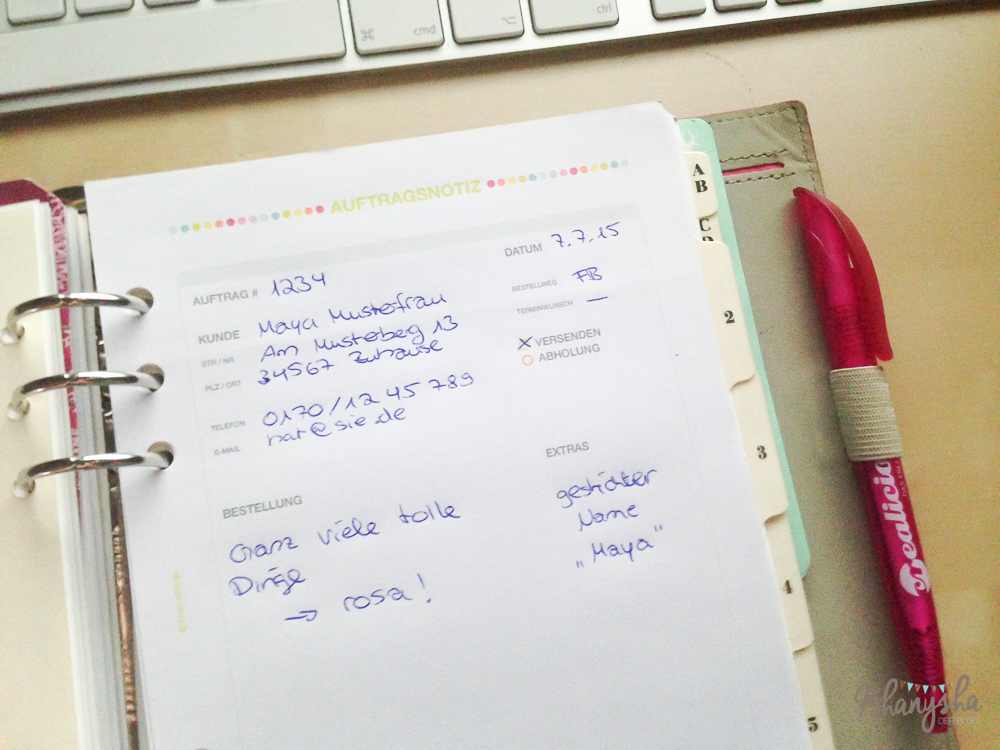 cmd
ctrl
AUFTRAGSNOTIZ
DATUM 7.7.15
AUFTRAG # 1234
BESTELLWEG FB
KUNDE Maya Musterfrau
TERMINWUNSCH —
STR / NR Am Musterberg 13
VERSENDEN
PLZ / ORT 34567 Zuhause
ABHOLUNG
TELEFON 0170/12 45 789
E-MAIL hat@sie.de
BESTELLUNG
Ganz viele tolle
Dinge
→ rosa!
EXTRAS
gestickter
Name
„Maya“
A
B
C
D
2
3
4
5
Crealicio
Shanysha
DER BLOG